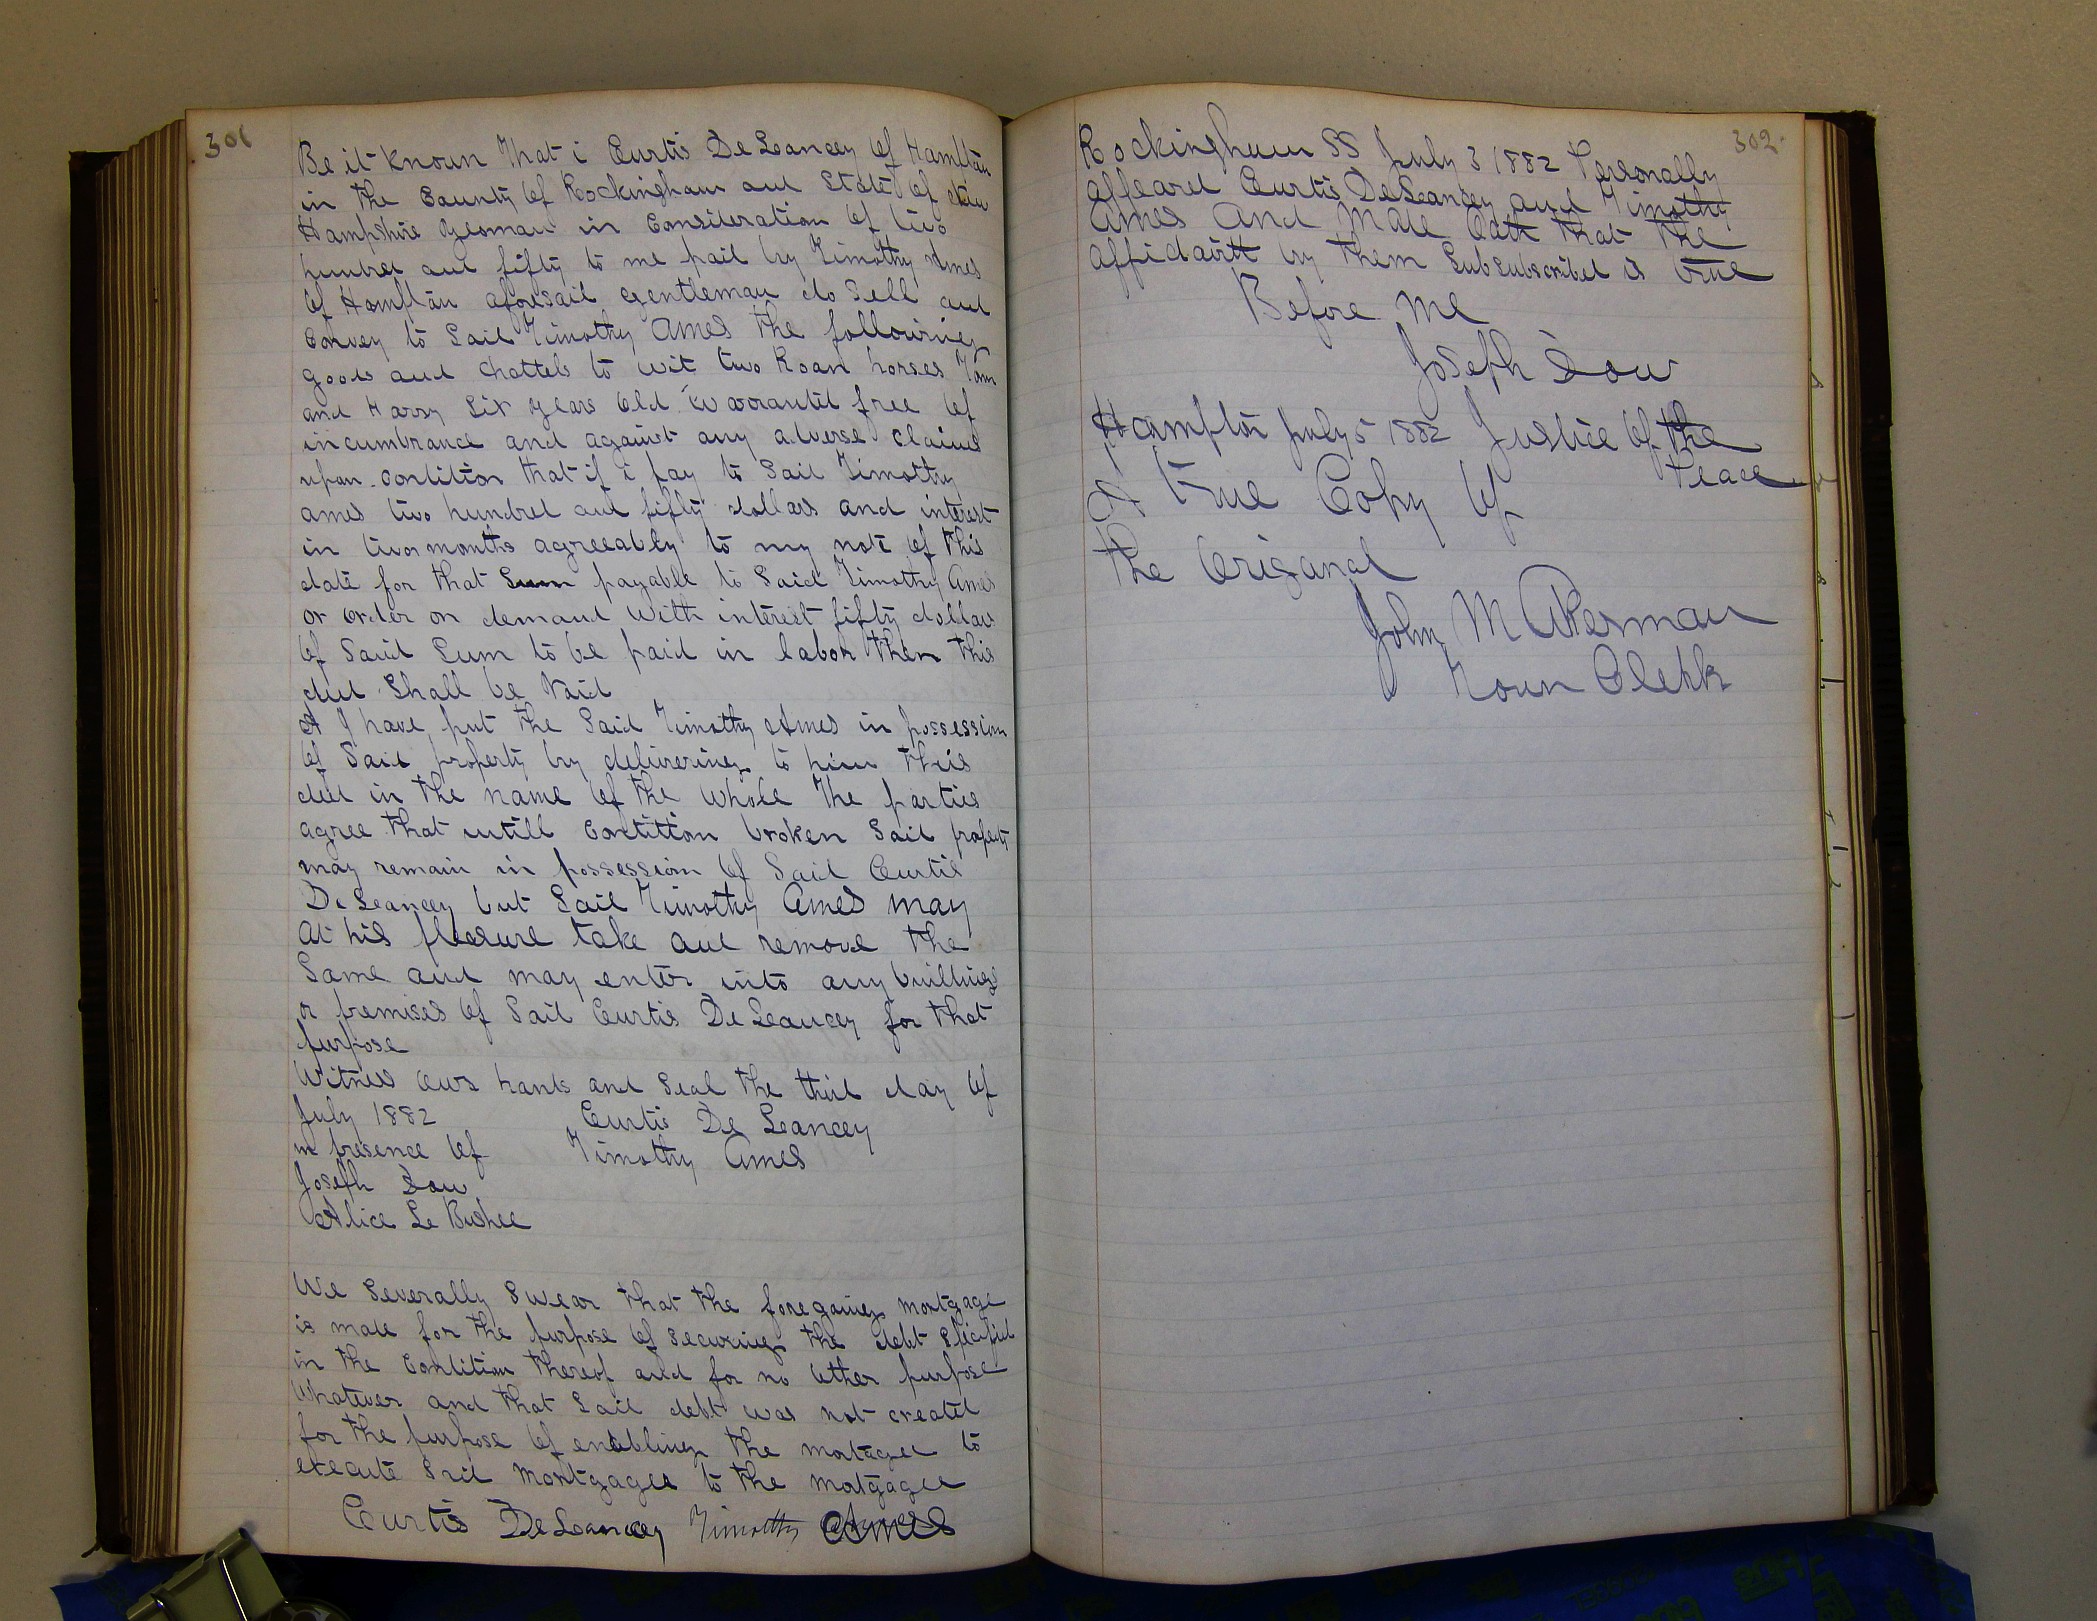 301
Be it known That i Curtis De Leancey of Hampton
in the County of Rockingham and State of New
Hampshire yeoman in Consideration of two
hundred and fifty to me paid by Timothy Ames
of Hampton aforesaid gentleman do Sell and
Convey to Said Timothy Ames the following
goods and Chattels to wit two Roan horses Tom
and Harry Six years Old Warranted free of
incumbrance and against any adverse claims
upon condition that if i pay to Said Timothy
ames two hundred and fifty dollars and interest
in two months agreeably to my note of this
date for that Sum payable to Said Timothy Ames
or order on demand With interest fifty dollars
of Said Sum to be paid in labor then this
deed Shall be Void
I have put the Said Timothy Ames in possession
of Said property by delivering to him this
deed in the name of the Whole The parties
agree that untill condition broken Said property
may remain in possession of Said Curtis
DeLeancey but Said Timothy Ames may
At his pleasure take and remove the
Same and may enter into any buildings
or premises of Said Curtis DeLeancey for that
purpose
Witness Ours hands and Seal the third day of
July 1882 Curtis De Leancey
in presence of Timothy Ames
Joseph Dow
Alice Le Bushee
We Severally Swear that the foregoing mortgage
is made for the purpose of Securing the debt Specified
in the Condition thereof and for no Other purpose
Whatever and that Said debt was not created
for the purpose of enabling the mortagee to
execute Said Mortgagee to the mortgagee
Curtis DeLeancey Timothy Ames
302
Rockingham SS July 3 1882 Personally
appeared Curtis DeLeancey and Timothy
Ames And Made Oath that the
affidavitt by them Subsubscribed is true
Before Me
Joseph Dow
Hampton July 5 1882 Justice Of the
Peace
A true Copy of
the Origanal
John M Akerman
Town Clerk